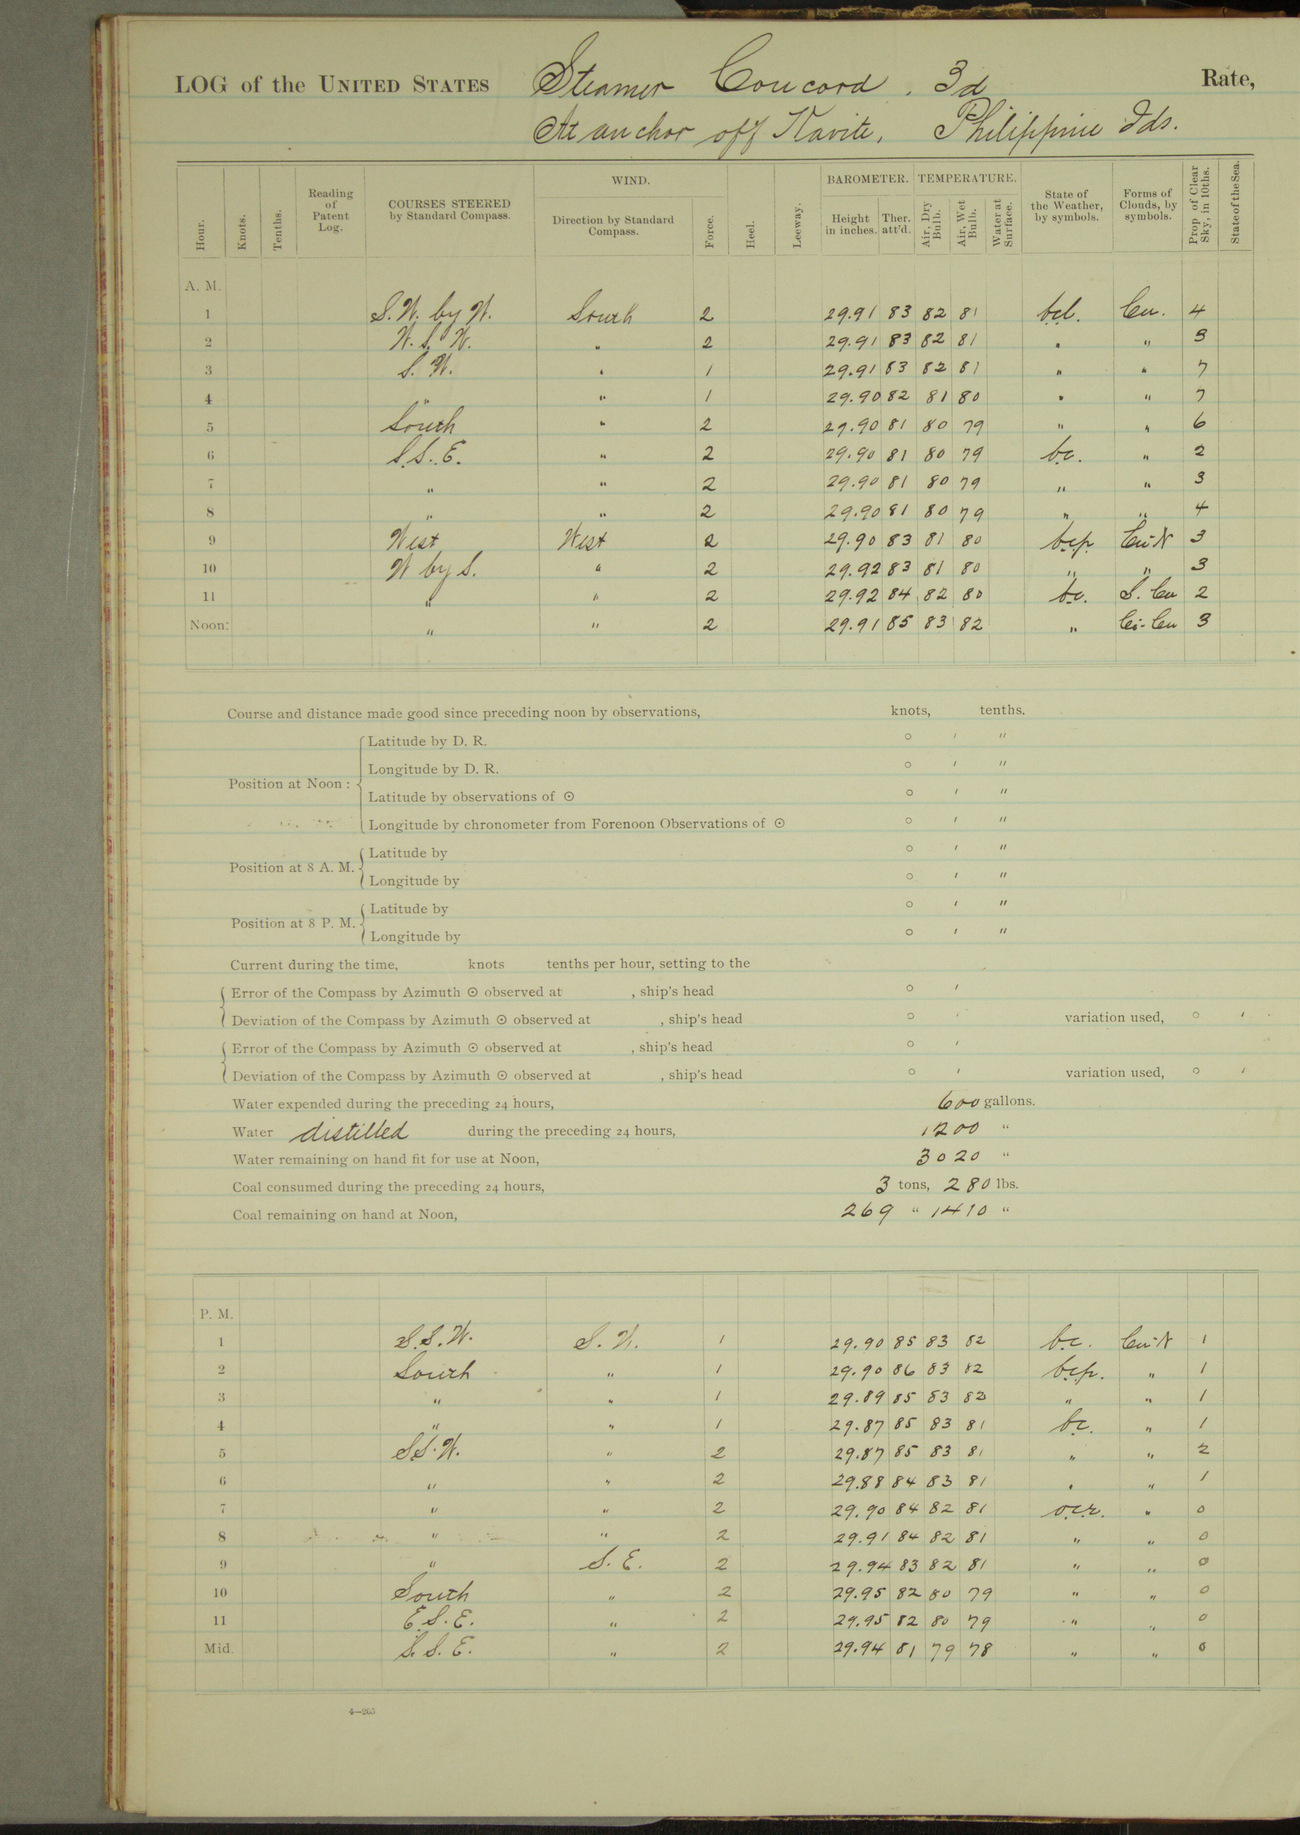 LOG of the UNITED STATES Steamer Concord, 3d Rate,
At anchor off Kavite, Philippine Ids.
Hour. Knots. Tenths. Reading of Patent Log. COURSES STEERED by Standard Compass. WIND. Direction by Standard Compass. Force. Heel. Leeway. BAROMETER. Height in inches. Ther. att'd. TEMPERATURE. Air, Dry Bulb. Air, Wet Bulb. Water at Surface. State of the Weather, by symbols. Forms of Clouds, by symbols. Prop of Clear Sky, in 10ths. State of the Sea.
A. M.
1 S.W. by W. South 2 29.91 83 82 81 b.c. Cu. 4
2 W.S.W. " 2 29.91 83 82 81 " " 3
3 S.W. " 1 29.91 83 82 81 " " 7
4 " " 1 29.90 82 81 80 " " 7
5 South " 2 29.90 81 80 79 " " 6
6 S.S.E. " 2 29.90 81 80 79 b.c. " 2
7 " " 2 29.90 81 80 79 " " 3
8 " " 2 29.90 81 80 79 " " 4
9 West West 2 29.90 83 81 80 b.c.p. Cu-N 3
10 W by S. " 2 29.92 83 81 80 " " 3
11 " " 2 29.92 84 82 80 b.c. S. Cu 2
Noon: " " 2 29.91 85 83 82 " Ci-Cu 3
Course and distance made good since preceding noon by observations, knots, tenths.
Position at Noon: Latitude by D. R. ° ′ ″
Longitude by D. R. ° ′ ″
Latitude by observations of ☉ ° ′ ″
Longitude by chronometer from Forenoon Observations of ☉ ° ′ ″
Position at 8 A. M. Latitude by ° ′ ″
Longitude by ° ′ ″
Position at 8 P. M. Latitude by ° ′ ″
Longitude by ° ′ ″
Current during the time, knots tenths per hour, setting to the
Error of the Compass by Azimuth ☉ observed at , ship's head ° ′
Deviation of the Compass by Azimuth ☉ observed at , ship's head ° ′ variation used, ° ′
Error of the Compass by Azimuth ☉ observed at , ship's head ° ′
Deviation of the Compass by Azimuth ☉ observed at , ship's head ° ′ variation used, ° ′
Water expended during the preceding 24 hours, 600 gallons.
Water distilled during the preceding 24 hours, 1200 "
Water remaining on hand fit for use at Noon, 3020 "
Coal consumed during the preceding 24 hours, 3 tons, 280 lbs.
Coal remaining on hand at Noon, 269 " 1410 "
P. M.
1 S.S.W. S.W. 1 29.90 85 83 82 b.c. Cu-N 1
2 South " 1 29.90 86 83 82 b.c.p. " 1
3 " " 1 29.89 85 83 82 " " 1
4 " " 1 29.87 85 83 81 b.c. " 1
5 S.S.W. " 2 29.87 85 83 81 " " 2
6 " " 2 29.88 84 83 81 " " 1
7 " " 2 29.90 84 82 81 o.c.r. " 0
8 " " 2 29.91 84 82 81 " " 0
9 " S.E. 2 29.94 83 82 81 " " 0
10 South " 2 29.95 82 80 79 " " 0
11 E.S.E. " 2 29.95 82 80 79 " " 0
Mid. S.S.E. " 2 29.94 81 79 78 " " 0
4—265